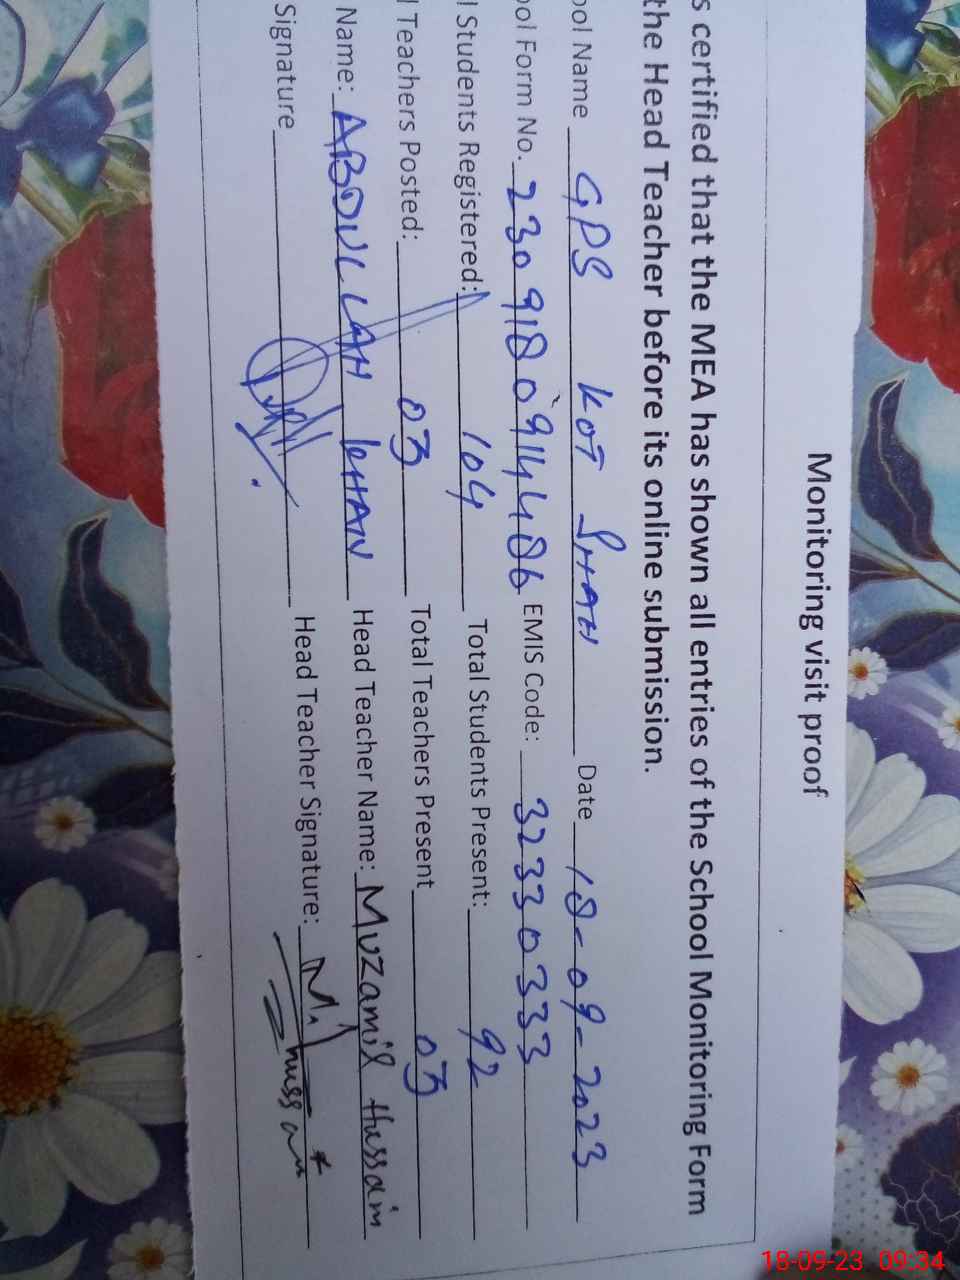 Monitoring visit proof
s certified that the MEA has shown all entries of the School Monitoring Form
the Head Teacher before its online submission.
ool Name GPS KOT SHAH Date 18-09-2023
ool Form No. 230918091448b EMIS Code: 32330333
l Students Registered: 104 Total Students Present: 92
l Teachers Posted: 03 Total Teachers Present 03
Name: ABDULLAH KHAN Head Teacher Name: Muzamil Hussain
Signature Head Teacher Signature: M. Hussain
18-09-23 09:34